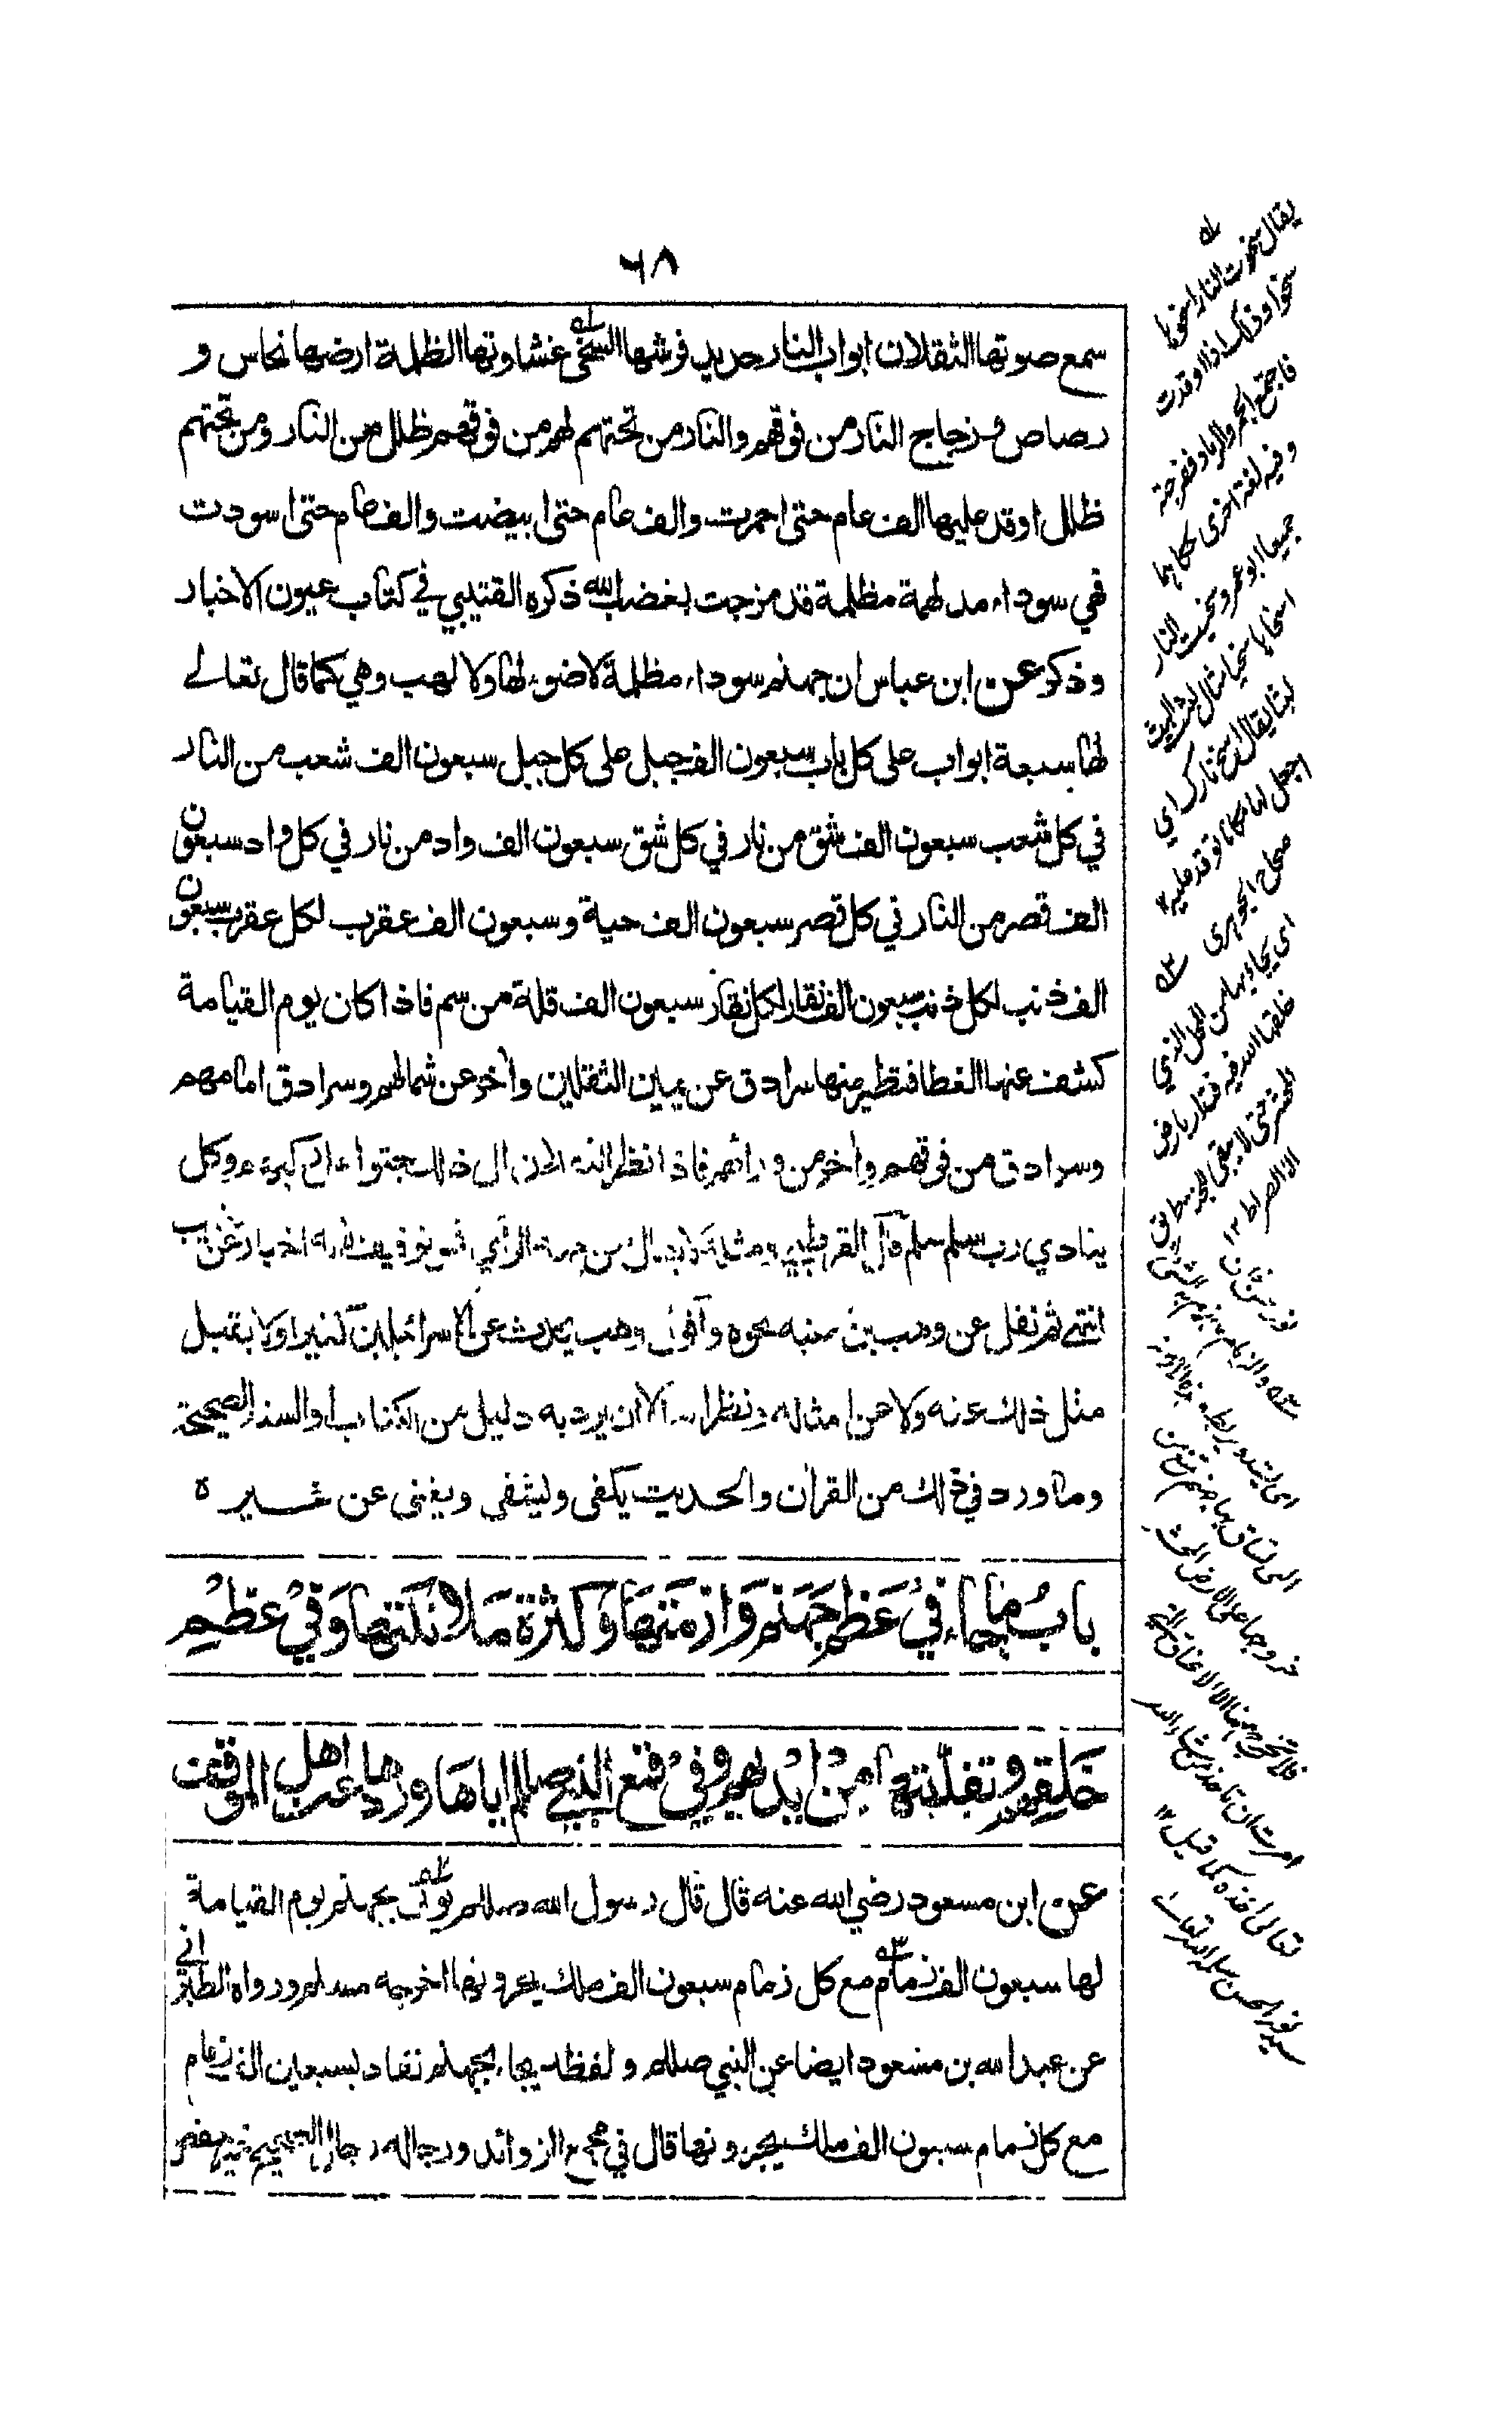 ٦٨
سمع صوتها الثقلان ابواب النار حديد فرشها السخى غشاوتها الظلمة ارضها نحاس و
رصاص و زجاج النار من فوقهم والنار من تحتهم لهم من فوقهم ظلل من النار ومن تحتهم
ظلل اوقد عليها الف عام حتى احمرت والف عام حتى ابيضت والف عام حتى اسودت
فهي سوداء مدلهمة مظلمة قد مزجت بغضب الله ذكره القتيبي في كتاب عيون الاخبار
وذكر عن ابن عباس ان جهنم سوداء مظلمة لا ضوء لها ولا لهب وهي كما قال تعالى
لها سبعة ابواب على كل باب سبعون الف جبل على كل جبل سبعون الف شعب من النار
في كل شعب سبعون الف شق من نار في كل شق سبعون الف واد من نار في كل واد سبعون
الف قصر من النار في كل قصر سبعون الف حية وسبعون الف عقرب لكل عقرب سبعون
الف ذنب لكل ذنب سبعون الف نقار لكل نقار سبعون الف قلة من سم فاذا كان يوم القيامة
كشف عنها الغطا فتطير منها سرادق عن يمين الثقلين وآخر عن شمالهم وسرادق امامهم
وسرادق من فوقهم وآخر من ورائهم فاذا نظر الثقلان الى ذلك جثوا على ركبهم وكل
ينادي رب سلم سلم قال القرطبي ومثله لا يقال من جهة الرأي فهو توقيف لانه اخبار عن مغيب
انتهى ثم نقل عن وهب بن منبه نحوه واقول وهب يحدث عن الاسرائيليين كثيرا ولا يقبل
مثل ذلك عنه ولا عن امثاله ونظرائه الا ان يرد به دليل من الكتاب او السنة الصحيحة
وما ورد في ذلك من القرآن والحديث يكفي ويشفي ويغني عن غيره
باب ما جاء في عظم جهنم وازمتها وكثرة ملائكتها وفي عظيم
خلقهم وتفلتها من ايديهم وفي قمع النبي صللم اياها وردها عن اهل الموقف
عن ابن مسعود رضي الله عنه قال قال رسول الله صللم يؤتى بجهنم يوم القيامة
لها سبعون الف زمام مع كل زمام سبعون الف ملك يجرونها اخرجه مسلم ورواه الطبراني
عن عبد الله بن مسعود ايضا عن النبي صللم ولفظه يجاء بجهنم تقاد بسبعين الف زمام
مع كل زمام سبعون الف ملك يجرونها قال في مجمع الزوائد ورجاله رجال الصحيح غير حفص
يقال سخوت النار اسخوها
سخوا وذلك اذا اوقدت
فاجتمع الجمر والرماد ففرجته
وفيه لغة اخرى حكاهما
جميعا ابو عمرو سخيت النار
اسخاها سخيا مثال لبثت البث
لبثا يقال اسخ نارك اي
اجعل لها مكانا توقد عليه
صحاح الجوهرى
اى يجاء بها من المحل الذي
خلقها الله فيه فتدار بارض
المحشر حتى لا يبقى للجنة طريق
الا الصراط ١٢